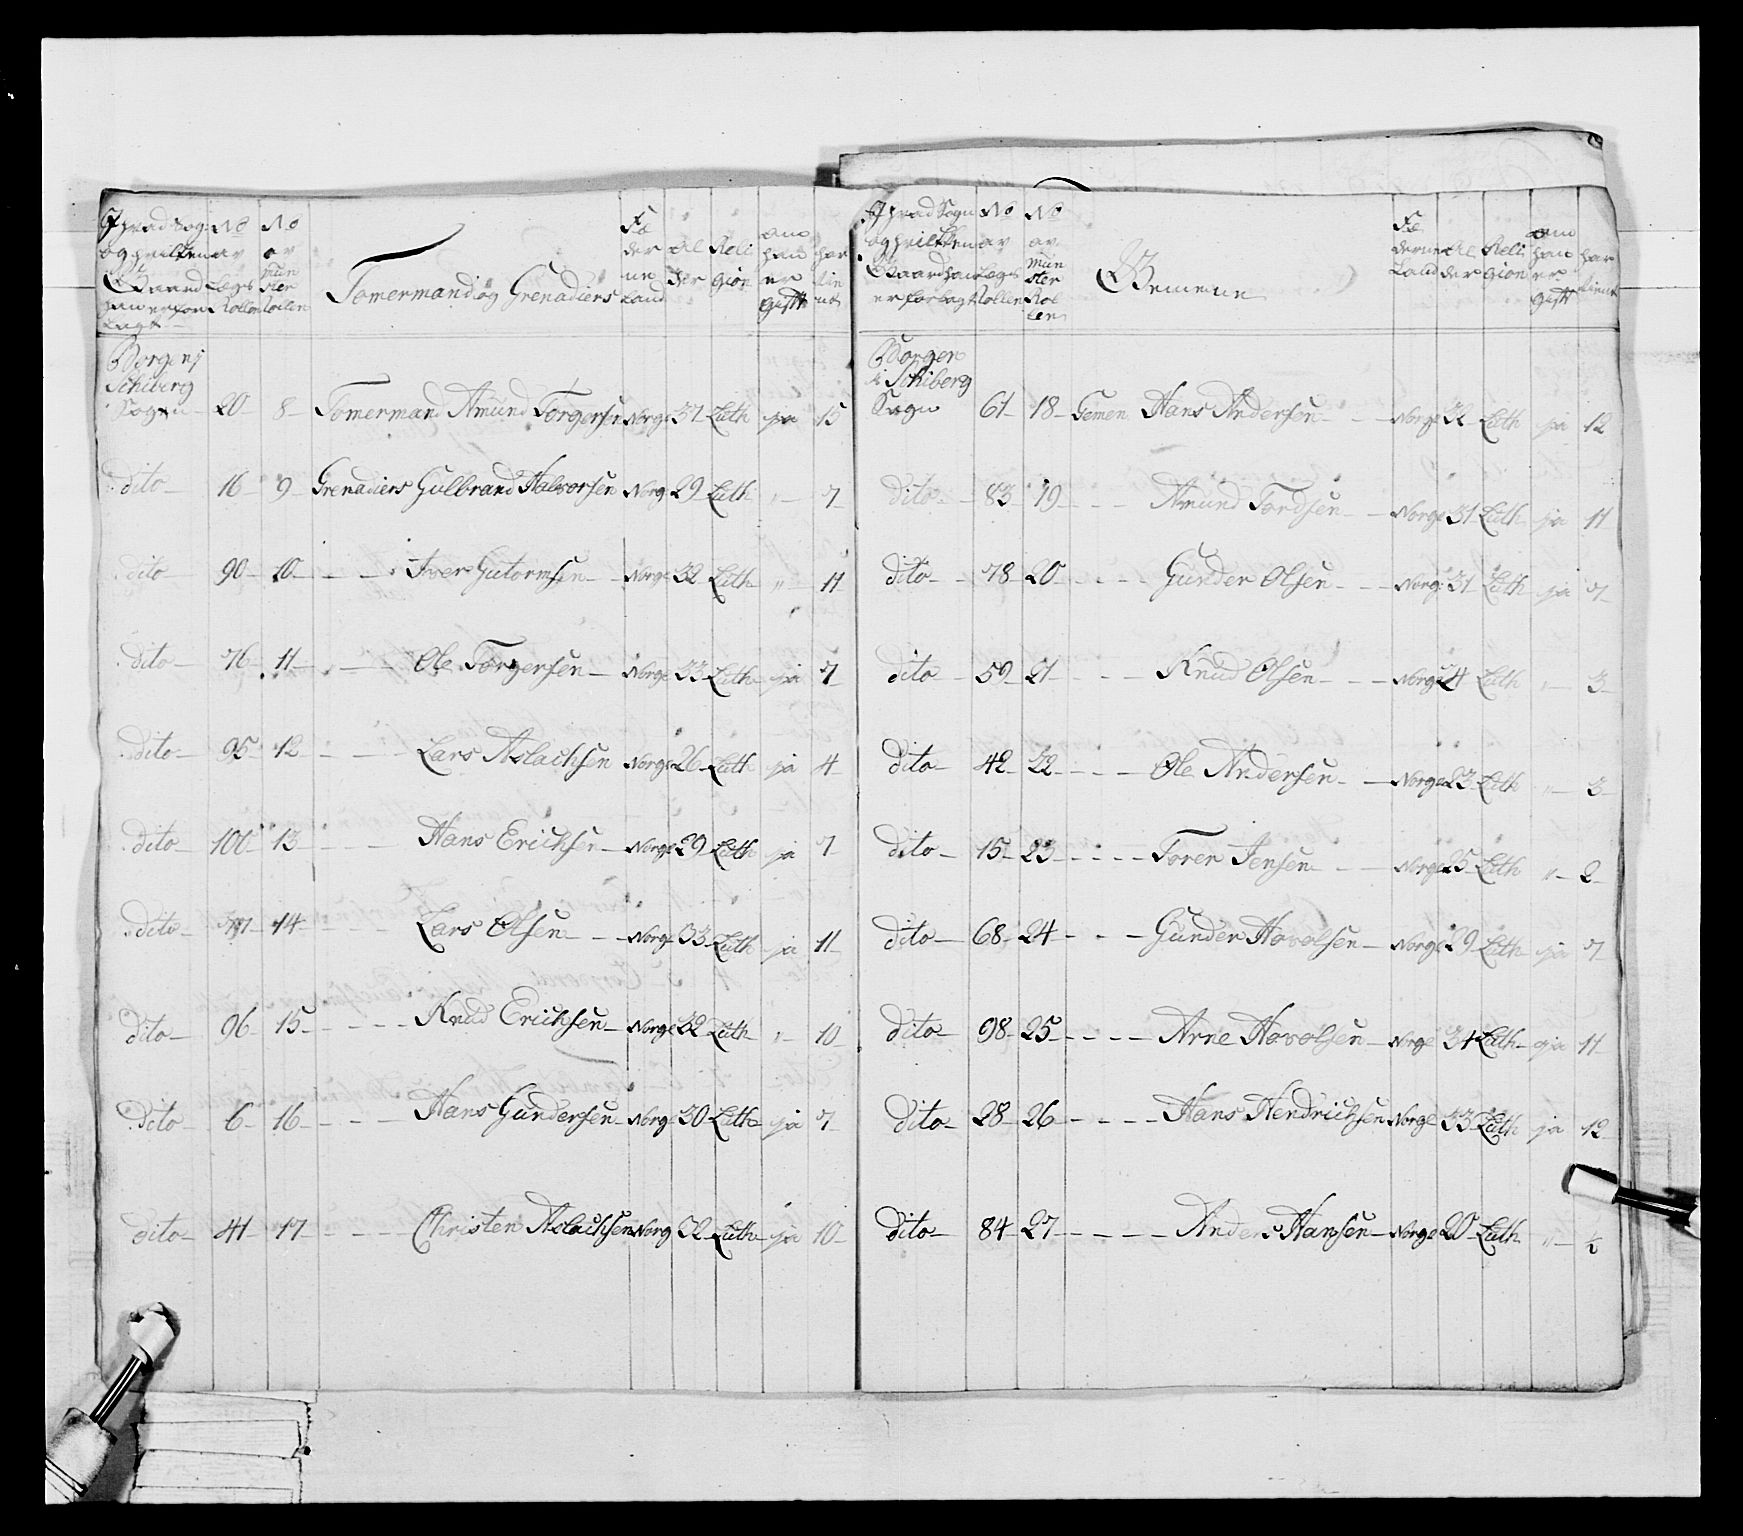 Hvad Sogn No No
og hvilken av av
Gaard Legs Mün
han er for Rollen ster
lagt Rollen
Tømermand og Grenadiers
Fæ
der
ne
Land
Al
der
Reli
gion
om
han
er
gift
har
tie
nt
Borgen i
Schiberg
Sogn 20 8 Tømermand Amünd Torgersen Norge 37 Luth ja 15
dito 16 9 Grenadiers Gulbrand Halvorsen Norg 29 Luth " 7
dito 90 10 Iver Gutormsen Norge 32 Luth " 11
dito 76 11 Ole Torgersen Norge 33 Luth ja 7
dito 95 12 Lars Aslachsen Norge 26 Luth ja 4
dito 100 13 Hans Erichsen Norge 29 Luth ja 7
dito 77 14 Lars Olsen Norge 33 Luth ja 11
dito 96 15 Knud Erichsen Norge 32 Luth " 10
dito 6 16 Hans Gundersen Norge 30 Luth ja 7
dito 41 17 Christen Aslachsen Norg 32 Luth ja 10
Hvad Sogn No No
og hvilken av av
Gaard han Legs Mün
er forlagt Rollen ster
Rol
len
Gemene
Fæ
derne
Land
Al
der
Reli
gion
om
han
er
gift
har
tient
Borgen
i Schiberg
Sogn 61 18 Gemen Hans Andersen Norge 32 Luth ja 12
dito 83 19 Amünd Tordsen Norge 31 Luth ja 11
dito 78 20 Gunder Olsen Norge 31 Luth ja 7
dito 59 21 Knud Olsen Norge 24 Luth " 3
dito 42 22 Ole Andersen Norge 23 Luth " 3
dito 15 23 Torer Jensen Norge 25 Luth " 2
dito 68 24 Gunder Havolsen Norge 29 Luth ja 7
dito 98 25 Arne Havolsen Norge 34 Luth ja 11
dito 28 26 Hans Hendrichsen Norge 33 Luth ja 12
dito 84 27 Anders Hansen Norge 20 Luth " ½